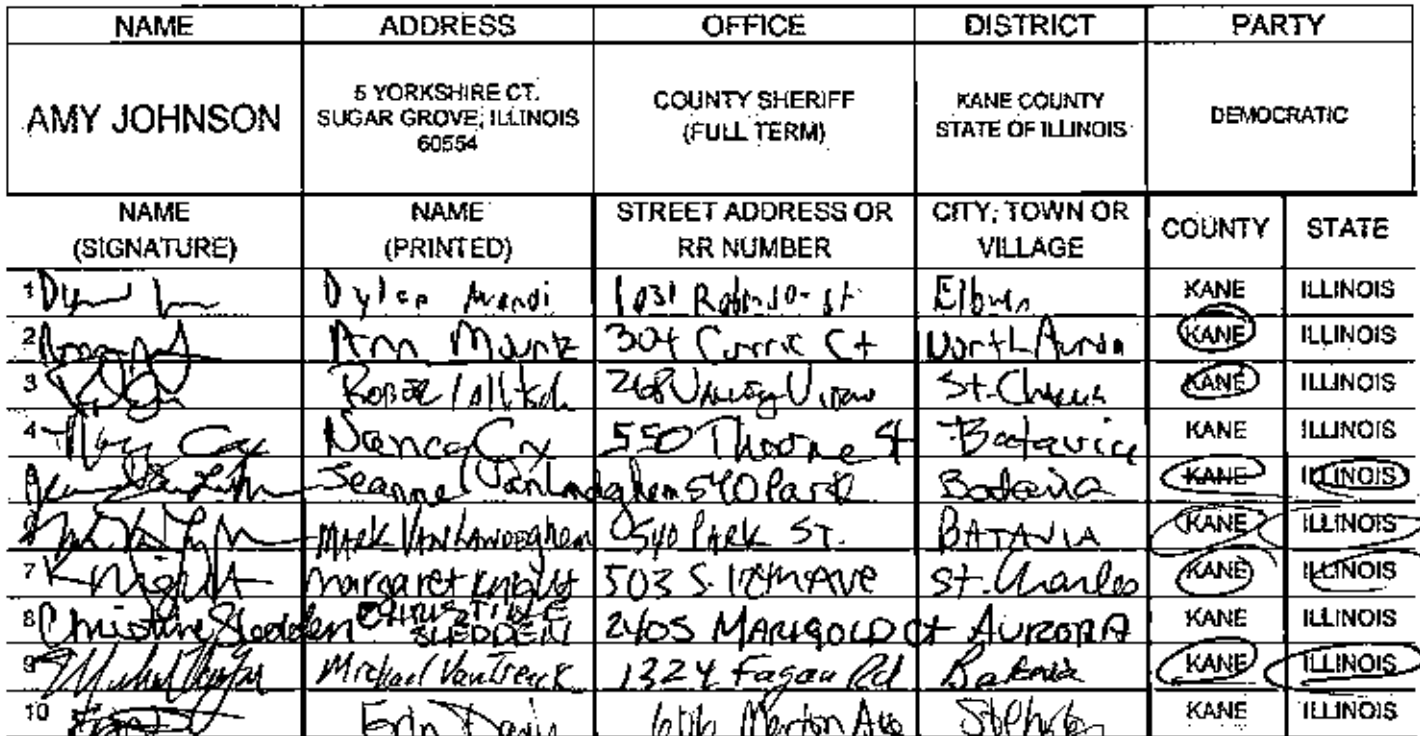 NAME ADDRESS OFFICE DISTRICT PARTY
AMY JOHNSON 5 YORKSHIRE CT. SUGAR GROVE, ILLINOIS 60554 COUNTY SHERIFF (FULL TERM) KANE COUNTY STATE OF ILLINOIS DEMOCRATIC
NAME (SIGNATURE) NAME (PRINTED) STREET ADDRESS OR RR NUMBER CITY, TOWN OR VILLAGE COUNTY STATE
1 Dylan 1031 Elburn KANE ILLINOIS
2 Ann Mountz 304 Currie Ct North Aurora KANE ILLINOIS
3 268 Valley View St. Charles KANE ILLINOIS
4 Nancy Cox Nancy Cox 550 St Batavia KANE ILLINOIS
5 Jeanne 540 Park Batavia KANE ILLINOIS
6 MARK 540 PARK ST. BATAVIA KANE ILLINOIS
7 Knight margaret Knight 503 S. AVE St. Charles KANE ILLINOIS
8 Christine Sledden CHRISTINE SLEDDEN 2405 MARIGOLD Ct AURORA KANE ILLINOIS
9 Michael VanTreeck 1324 Fagan Rd Batavia KANE ILLINOIS
10 Erin Davis Merton Ave St Charles KANE ILLINOIS